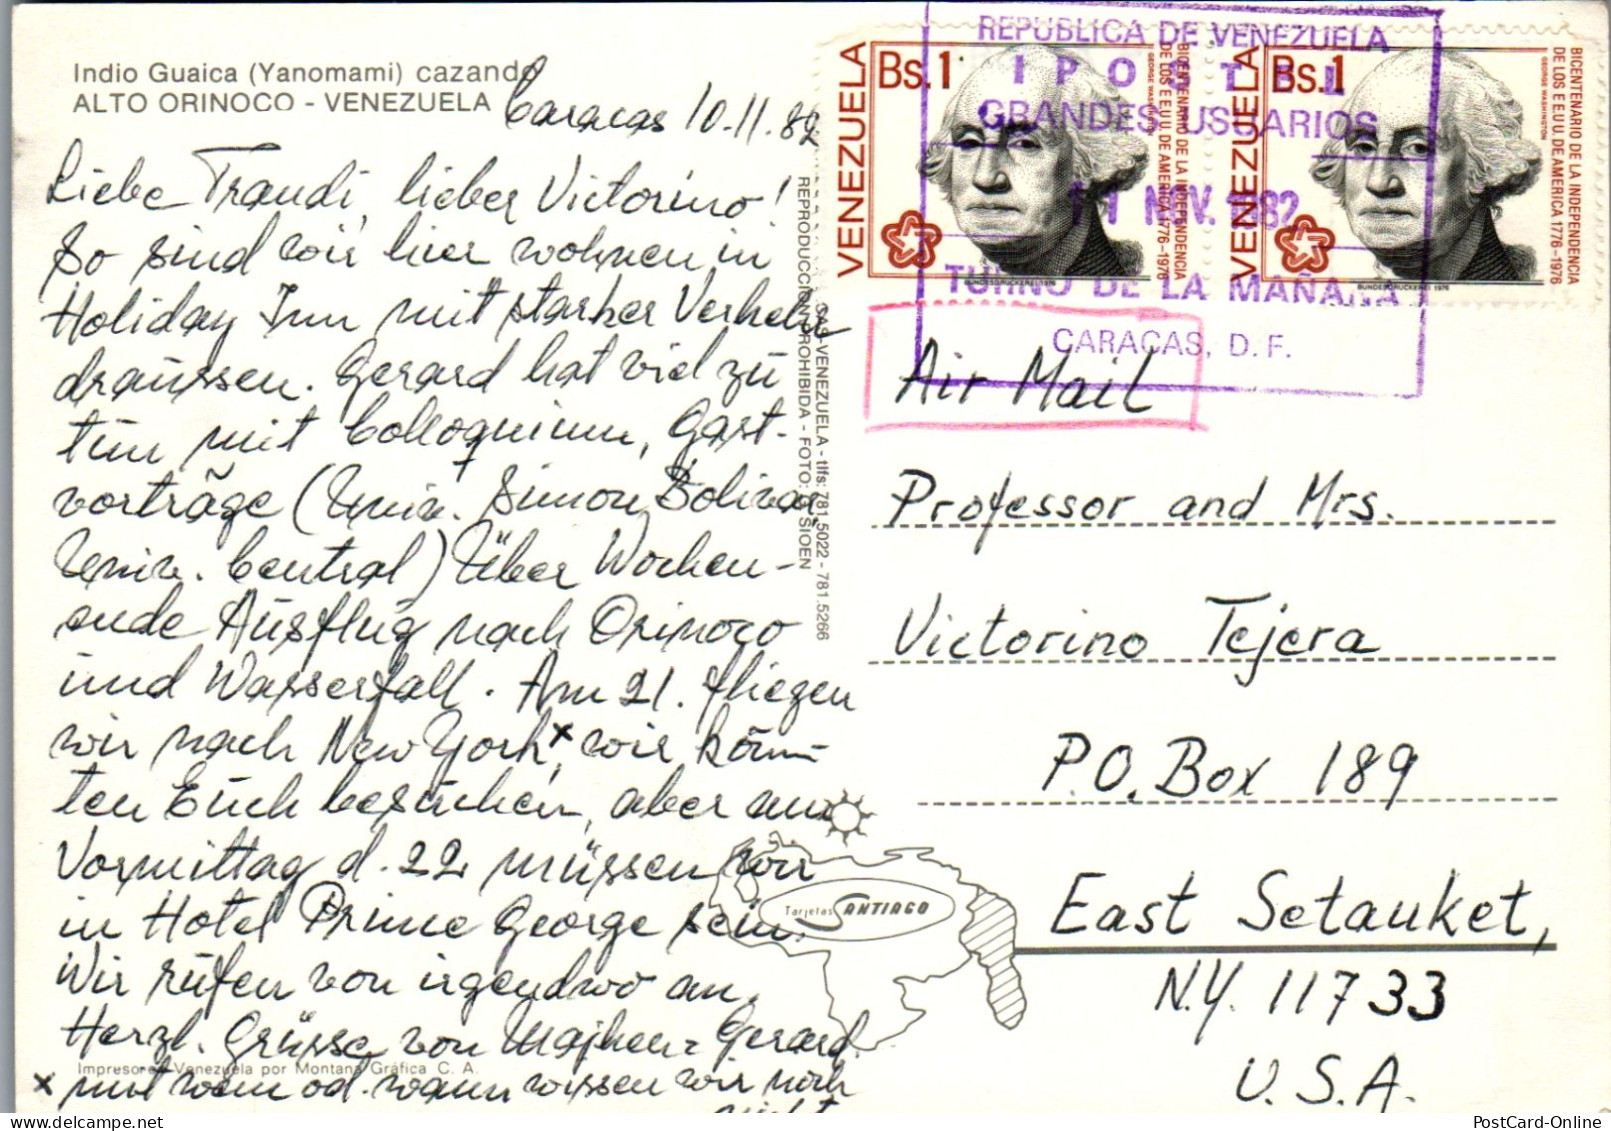 Indio Guaica (Yanomami) cazando
ALTO ORINOCO - VENEZUELA
Caracas 10.11.82
Liebe Traudi, lieber Victorino!
So sind wir, hier wohnen in
Holiday Inn mit starker Verkehr
draussen. Gerard hat viel zu
tun mit Colloquium, Gast-
vorträge (Univ. Simon Bolivar,
Univ. Central) Über Wochen-
ende Ausflug nach Orinoco
und Wasserfall. Am 21. fliegen
wir nach New York,x wir könn-
ten Euch besuchen, aber am
Vormittag d. 22 müssen wir
in Hotel Prince George sein.
Wir rufen von irgendwo an.
Herzl. Grüsse von Gerard
x mit wem od. wann wissen wir noch
nicht
Impreso en Venezuela por Montana Gráfica C. A.
VENEZUELA - tlfs: 781.5022 - 781.5266
REPRODUCCION PROHIBIDA - FOTO: SIOEN
Tarjetas SANTIAGO
VENEZUELA
Bs.1
BICENTENARIO DE LA INDEPENDENCIA
DE LOS EE.UU. DE AMERICA 1776-1976
GEORGE WASHINGTON
BUNDESDRUCKEREI 1976
VENEZUELA
Bs.1
BICENTENARIO DE LA INDEPENDENCIA
DE LOS EE.UU. DE AMERICA 1776-1976
GEORGE WASHINGTON
BUNDESDRUCKEREI 1976
REPUBLICA DE VENEZUELA
I P O S T E L
GRANDES USUARIOS
11 NOV. 1982
TURNO DE LA MAÑANA
CARACAS, D. F.
Air Mail
Professor and Mrs.
Victorino Tejera
P.O. Box 189
East Setauket,
N.Y. 11733
U.S.A.
PostCard-Online